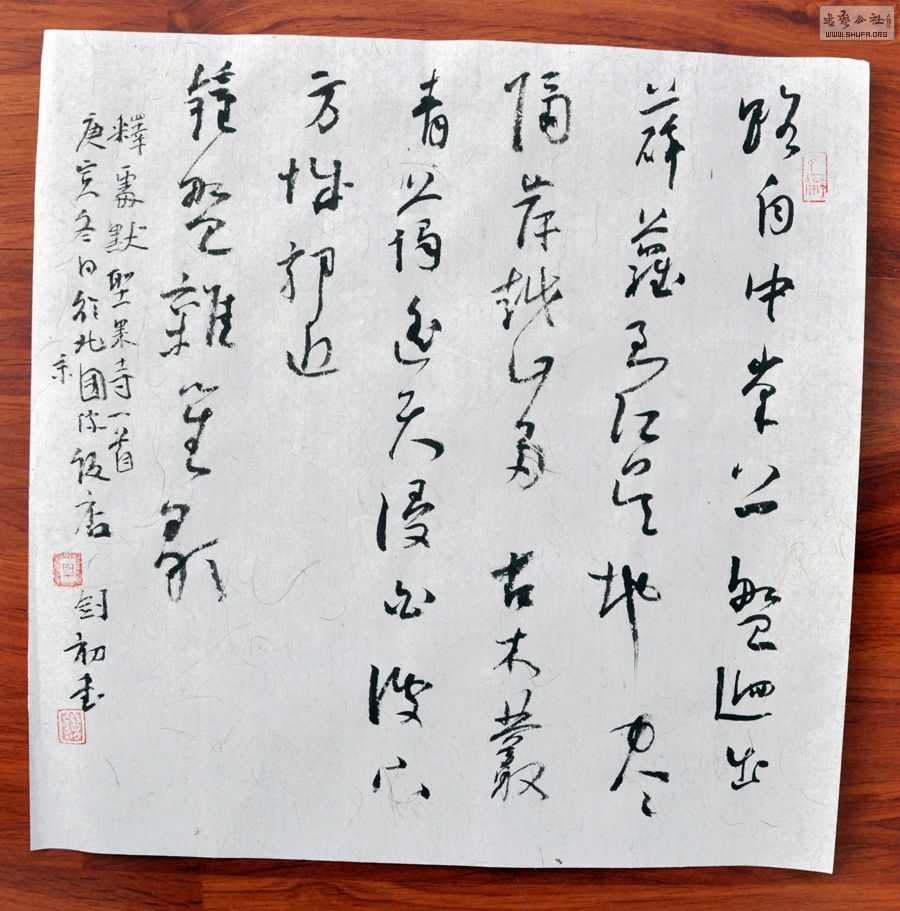 路自中峯上盤迴出
薜蘿到江吳地盡
隔岸越山多古木叢
青靄遙天浸白波下
方城郭近
鐘磬雜笙歌
釋處默聖果寺一首
庚寅冬日於北國際飯店 劍初書
京
書藝公社
WWW.SHUFA.ORG